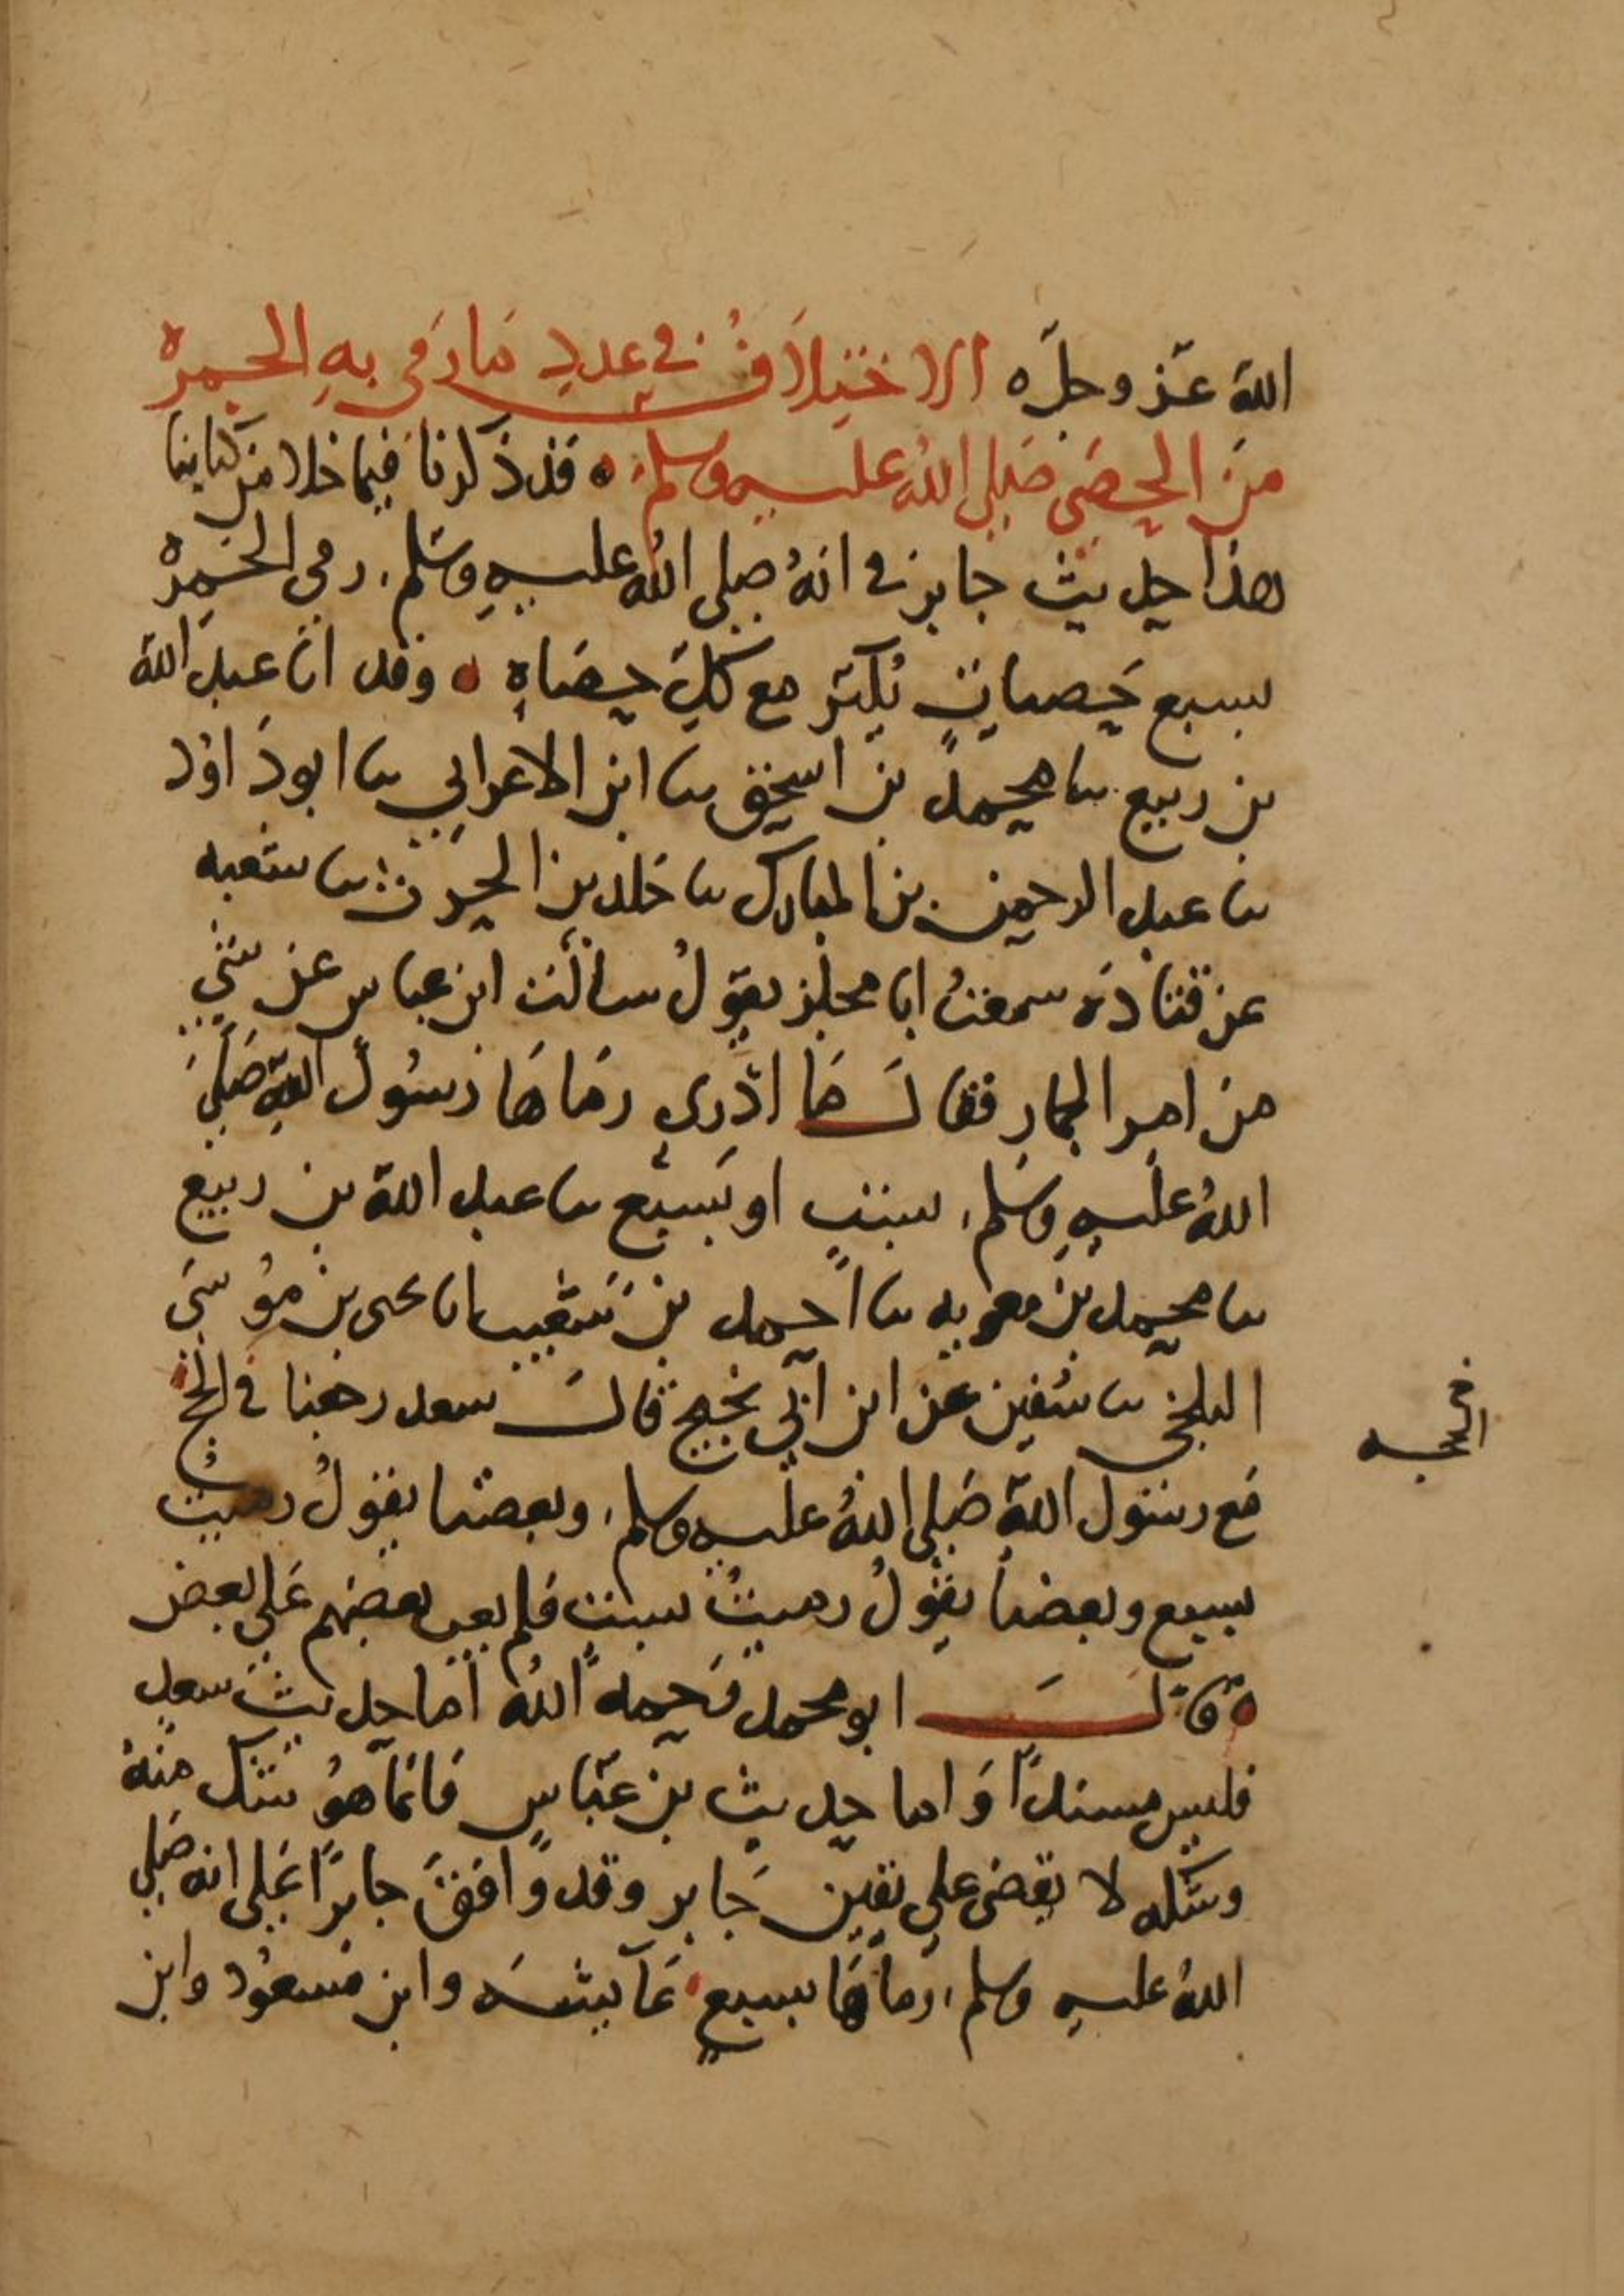 الله عَز وجلّ ه الاختِلافُ في عددِ مَا رَمَى به الجمره
منَ الحصَى صَلى اللهُ عليه وسلم ه قد ذكرنا فيما خلا من كتابنا
هذا حديث جابر في انهُ صلى اللهُ عليهِ وسَلم رمى الجمره
بسبع حَصياتٍ يُكَبّر مع كل حصَاهٍ ه وقد انا عبد الله
بن ربيع نا محمد بن اسحق نا ابن الاعرابي نا ابو دَاوُد
نا عبد الرحمن بن المبارك نا خَلد بن الحرث نا شعبه
عن قتادَه سمعتُ ابا مجلز يقولُ سالتُ ابن عباس عن شيء
من امر الجمار فقال مَا ادْرى رمَاهَا رسُولُ اللهِ صَلى
اللهُ عليهِ وسَلم بستٍ او بسَبْع نا عبد الله بن ربيع
نا محمد بن معويه نا احمد بن شُعَيب انا يحيى بن مُوسَى
البلخي نا سُفين عن ابن ابي نجيح قال سعد رجعنا في الحج
في
الحجه
مَع رسُول الله صَلى اللهُ عليه وسلم وبعضنا يقولُ رميتُ
بسبع وبعضنا يقولُ رميتُ بستٍ فلم يعب بعضهم عَلى بعض
ه قالَ ابو محمد رَحمه اللهُ امَا حديث سعد
فليس مسندًا وَاما حديث بن عَباسٍ فانمَا هوُ شك منهُ
وشكه لا يقضى على يقين جَابر وقد وَافقَ جابرًا عَلى انه صَلى
اللهُ عليه وسلم رمَاهَا بسبعٍ عَايشَه وابن مَسعُود وابن